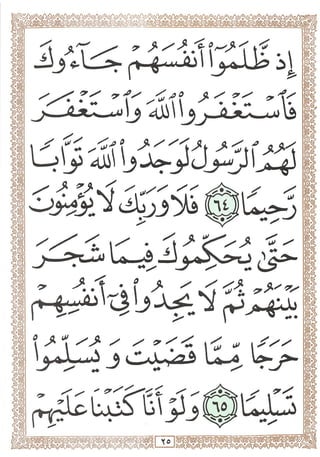 إِذ ظَّلَمُوٓا۟ أَنفُسَهُمْ جَآءُوكَ
فَٱسْتَغْفَرُوا۟ ٱللَّهَ وَٱسْتَغْفَرَ
لَهُمُ ٱلرَّسُولُ لَوَجَدُوا۟ ٱللَّهَ تَوَّابًا
رَّحِيمًا ٦٤ فَلَا وَرَبِّكَ لَا يُؤْمِنُونَ
حَتَّىٰ يُحَكِّمُوكَ فِيمَا شَجَرَ
بَيْنَهُمْ ثُمَّ لَا يَجِدُوا۟ فِىٓ أَنفُسِهِمْ
حَرَجًا مِّمَّا قَضَيْتَ وَيُسَلِّمُوا۟
تَسْلِيمًا ٦٥ وَلَوْ أَنَّا كَتَبْنَا عَلَيْهِمْ
٢٥